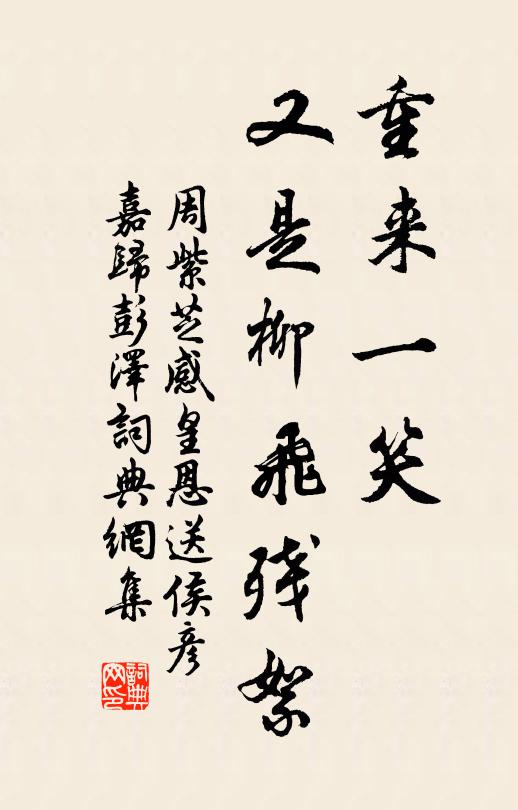 重来一笑
又是柳飛残絮
周紫芝感皇恩送侯彦
嘉歸彭澤詞典網集
詞典网印